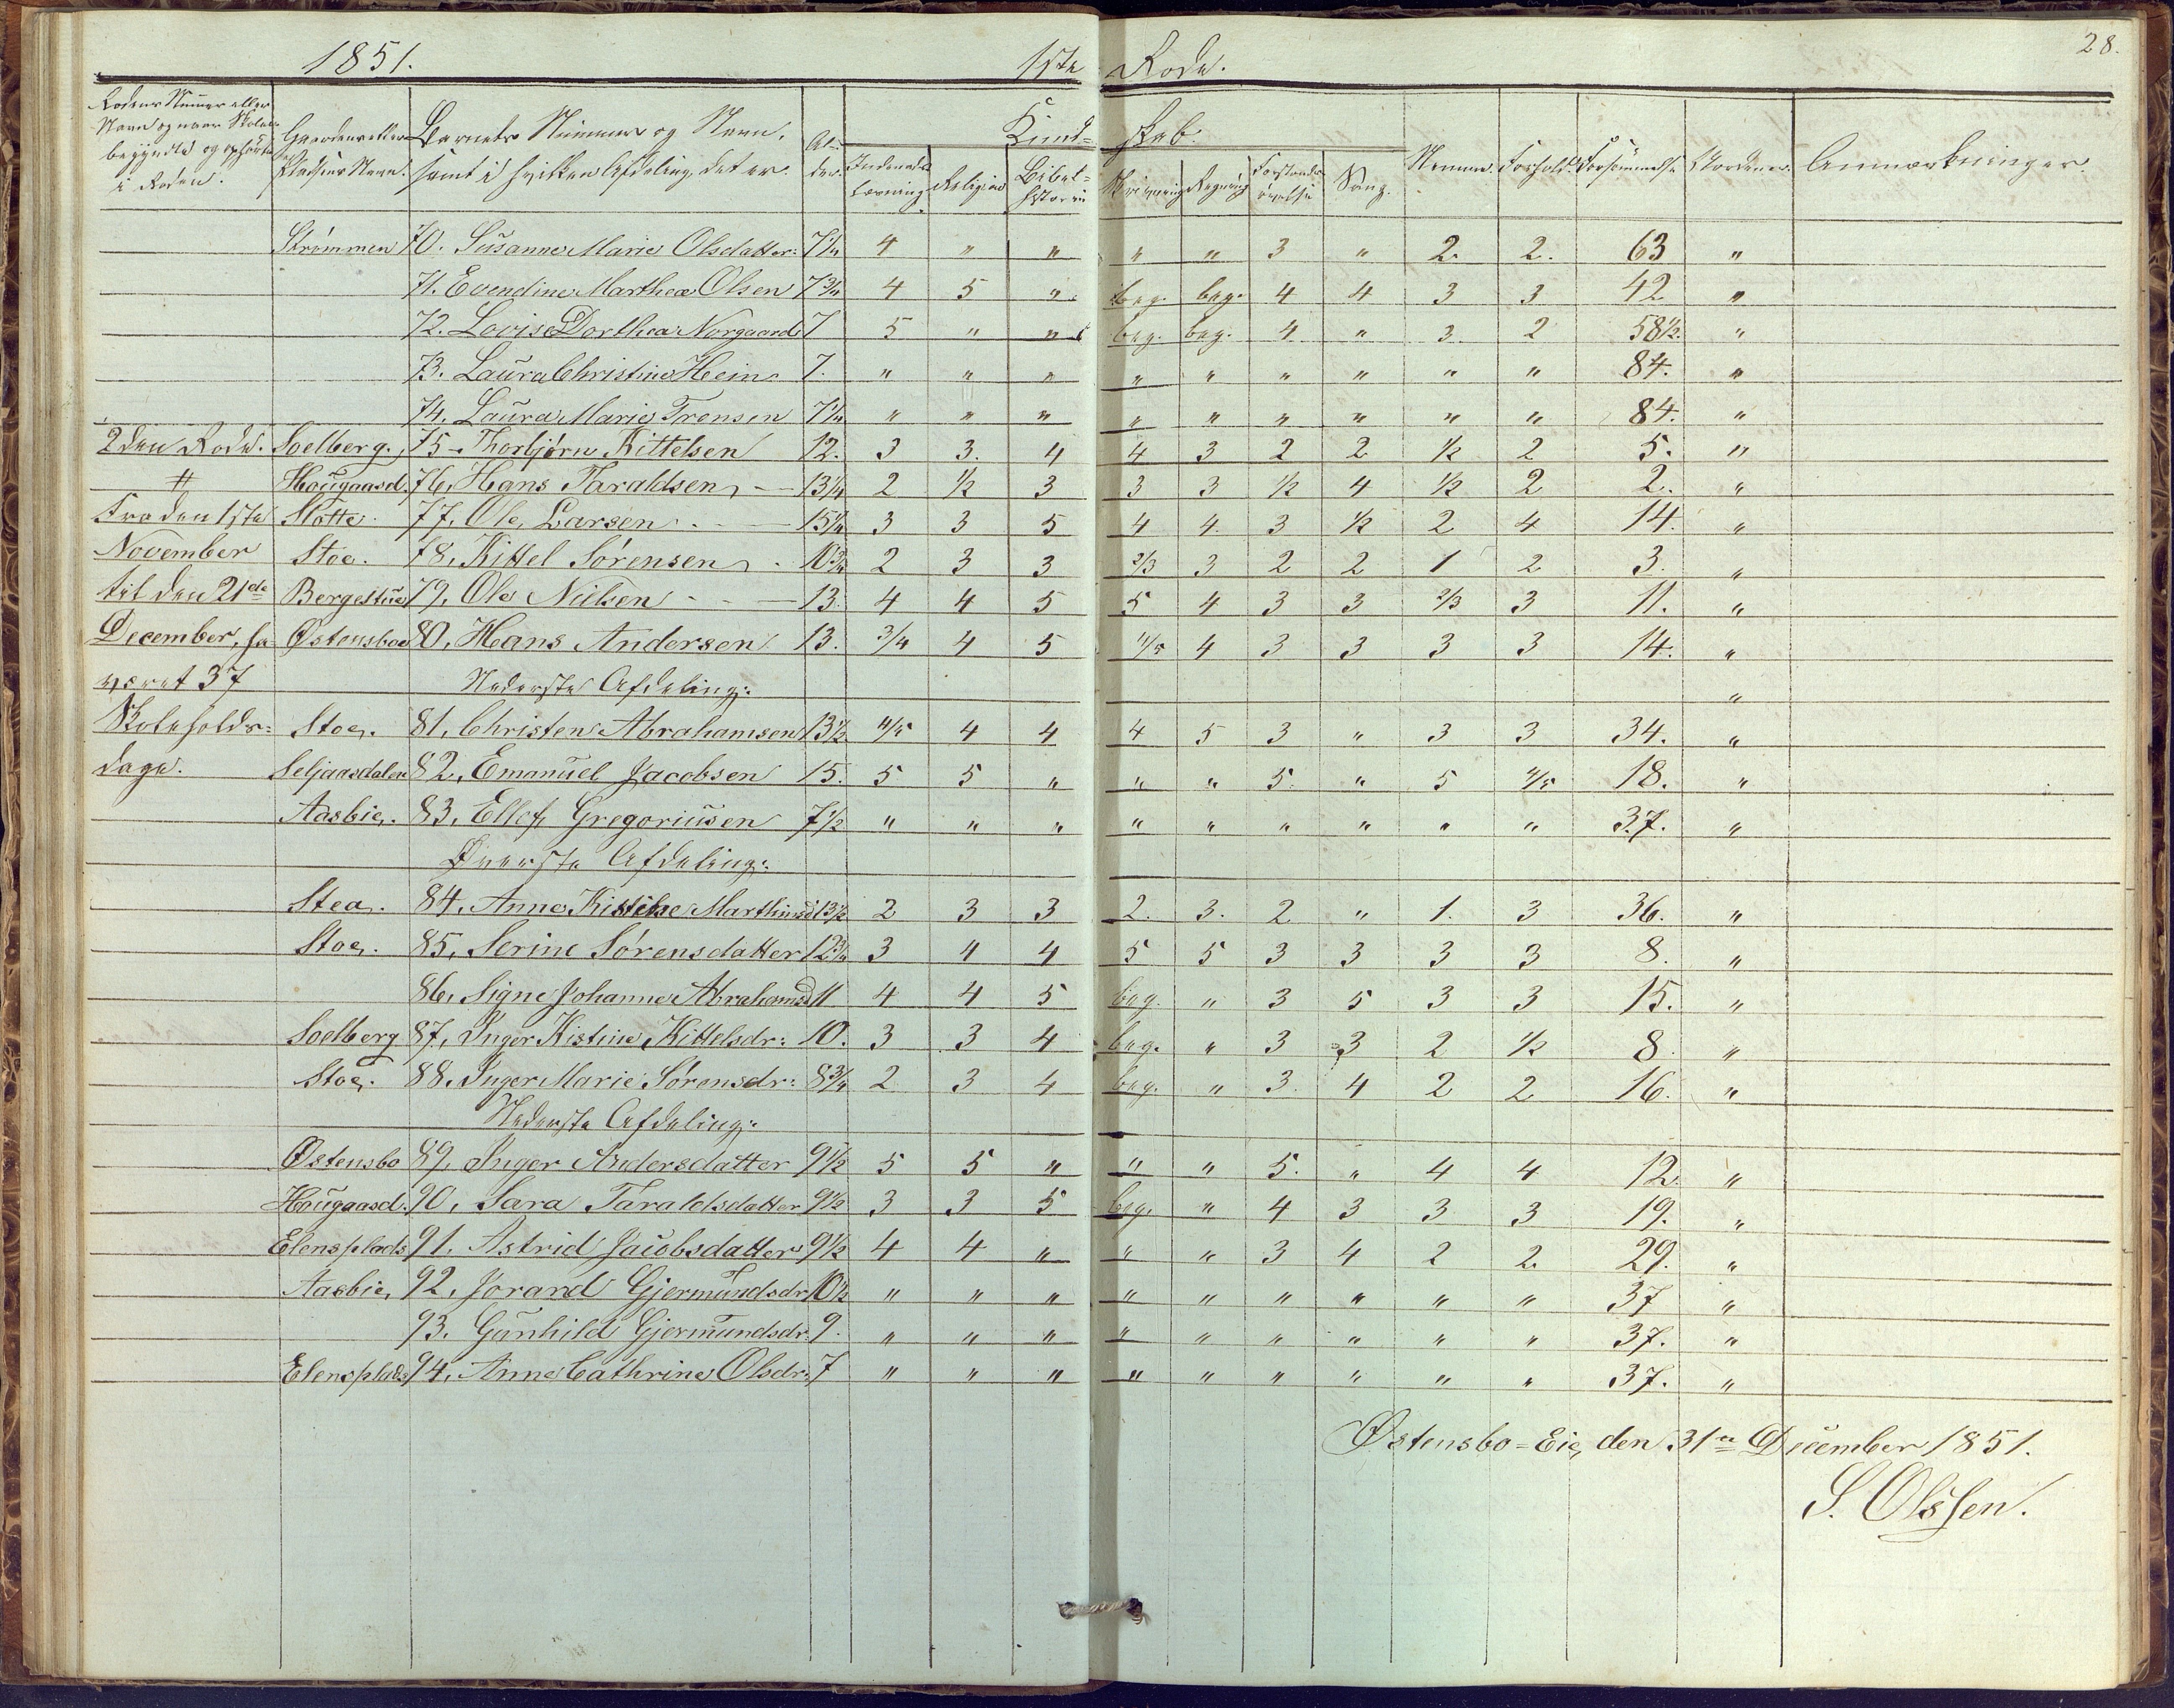 28.
1851. 1ste Rode.
Rodens Nummer eller Navn og naar Skolen begyndte og ophørte i Roden. Gaardens eller Pladsens Navn. Barnets Nummer og Navn, samt i hvilken Afdeling det er. Al-der. Kund= skab.
Indenads læsning. Religion Bibel= historie Skrivning Regning Forstands øvelse Sang. Nemme. Forhold. Forsømmelse Anmærkninger.
Strømmen 70. Susanne Marie Olsdatter: 7 1/4 4 " " " " 3 " 2. 2. 63 "
71. Evendine Marthea Olsen 7 3/4 4 5 " beg. beg. 4 4 3 3 42 "
72. Lovise Dorthea Norgaard 7 5 " " beg. beg. 4 " 3. 2 58 1/2. "
73. Laura Christine Hein 7. " " " " " " " " " 84. "
74. Laura Marie Trensen 7 1/4 " " " " " " " " " 84. "
2den Rode. Soelberg. 75 - Thorbjørn Kittelsen 12. 3 3. 4 4 3 2 2 1/2 2 5. "
# Hougaasd. 76, Hans Taraldsen, - 13 1/4 2 1/2 3 3 3 1/2 4 1/2 2 2. "
Fra den 1ste Slotte. 77, Ole, Larsen. 15 1/4 3 3 5 4 4. 3 1/2 2 4 14. "
November Stoe. 78, Kittel Sørensen, 10 3/4 2 3 3 2/3 3 2 2 1 2 3. "
til den 21de Bergestue 79, Ole Nielsen 13. 4 4 5 5 4 3 3 2/3 3 11. "
December, ha Østensboe 80, Hans Andersen 13. 3/4 4 5 4/5 4 3 3 3 3 14. "
været 37 Nederste Afdeling: "
Skoleholds= Stoe. 81, Christen Abrahamsen 13 1/2 4/5 4 4 4 5 3 " 3 3 34. "
dage. Seljaasdalen 82, Emanuel Jacobsen 15. 5 5 " " " 5. " 5 4/5 18. "
Aasbie. 83, Ellef, Gregoriusen 7 1/2 " " " " " " " " " 37. "
Øverste Afdeling:
Stea. 84, Anne Kistine Marthinsd 13 1/2 2 3 3 2. 3. 2 " 1. 3 36. "
Stoe. 85, Serine Sørensdatter 12 3/4 3 4 4 5 5 3 3 3 3 8. "
86, Signe Johanne Abrahamsd 11 4 4 5 beg. " 3 5 3 3 15. "
Soelberg 87, Inger Kistine Kittelsdr: 10. 3 3 4 beg. " 3 3 2 1/2 8. "
Stoe. 88. Inger Marie Sørensdr: 8 3/4 2 3 4 beg. " 3. 4 2 2 16. "
Nederste Afdeling:
Østensbo 89, Inger Andersdatter 9 1/2 5 5 " " " 5. " 4 4 12. "
Hougaasd. 90, Sara Taraldsdatter 9 1/2 3 3 5 beg. " 4 3 3 3 19. "
Elensplads 91. Astrid Jacobsdatter 9 1/2 4 4 " " " 3 4 2 2. 29. "
Aasbie, 92, Jorand Gjermundsdr 10 1/2 " " " " " " " " " 37 "
93. Gunhild Gjermundsdr. 9. " " " " " " " " " 37. "
Elensplads 94, Anne Cathrine Olsdr: 7 " " " " " " " " " 37. "
Østensbo=Eie, den 31te December 1851.
S. Olssen.